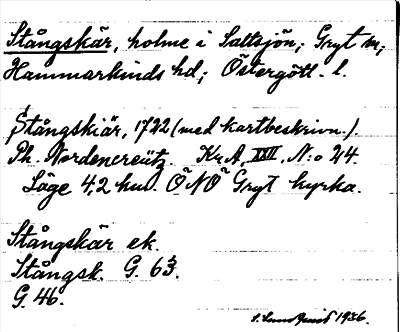 Stångskär, holme i Saltsjön; Gryt sn;
Hammarkinds hd; Östergötl. l.
Stångskiär, 1722 (med kartbeskrivn.).
Ph. Nordencreütz. Kr A, XXII, N:o 24.
Läge 4,2 km. ÖNÖ Gryt kyrka.
Stångskär ek.
Stångsk. G. 63.
G. 46.
S. Lundquist 1936.